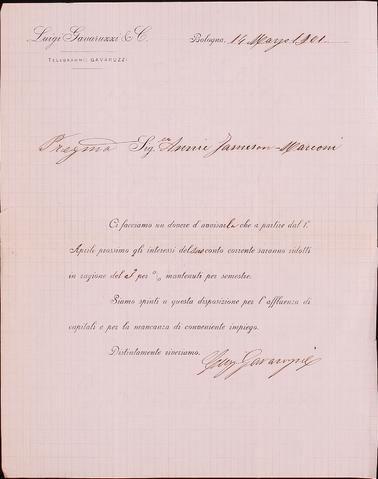 Luigi Gavaruzzi & C.
Bologna, 14 Marzo 1901.
TELEGRAMMI: GAVARUZZI
Pregma Sig.ra Annie Jameson-Marconi
Ci facciamo un dovere d'avvisarla che a partire dal 1°
Aprile prossimo gli interessi del suo conto corrente saranno ridotti
in ragione del 3 per % mantenuti per semestre.
Siamo spinti a questa disposizione per l'affluenza di
capitali e per la mancanza di conveniente impiego.
Distintamente riveriamo.
Luigi Gavaruzzi & C.